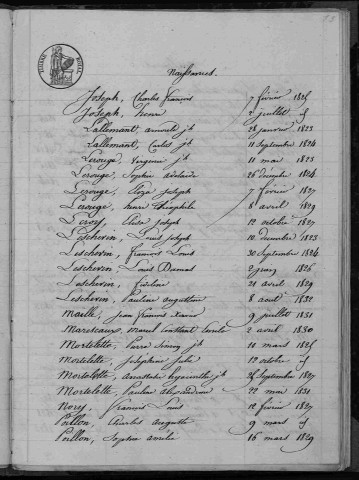 Naissances.
Joseph, Charles François 7 février 1825
Joseph, henri 2 juillet
Lallemant, jh 28 janvier 1823
Lallemant, Carles jh 11 Septembre 1824
Lerouge, Virginie jh 11 mai 1823
Lerouge, Sophie adelaide 26 décembre 1824
Lerouge, Eloza joseph 7 février 1827
Lerouge, henri théophile 8 avril 1829
Leroy, Elisa joseph 12 octobre 1827
Leschevin, Louis joseph 10 décembre 1823
Leschevin, françois Louis 30 Septembre 1824
Leschevin, Louis 2 1826
Leschevin, 21 avril 1829
Leschevin, Pauline augustine 8 août 1832
Maille, jean françois 9 juillet 1831
Marescaux, Constant 2 avril 1830
Mortelette, Pierre jh 11 mars 1825
Mortelette, Joséphine Julie 12 octobre
Mortelette, Anastasie hyacinthe jh 25 Septembre 1827
Mortelette, Pauline alexandrine 22 mai 1831
Nory, François Louis 12 février 1827
Potllon, Charles auguste 9 mars
Potllon, Sophie 16 mars 1829